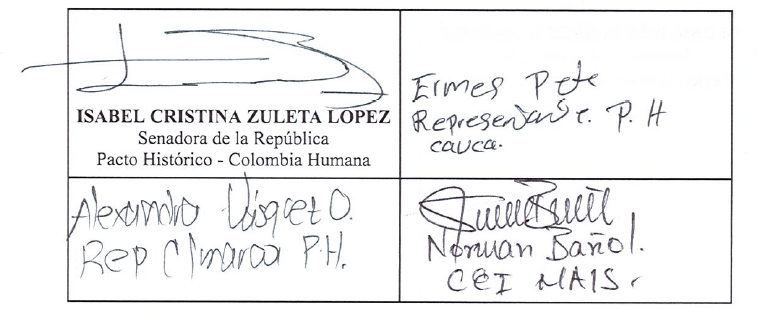 ISABEL CRISTINA ZULETA LOPEZ
Senadora de la República
Pacto Histórico - Colombia Humana
Ermes Pete
Representante. P. H
cauca.
Alexandra Vásquez O.
Rep C/marca P.H.
Norman Bañol.
CEI MAIS.